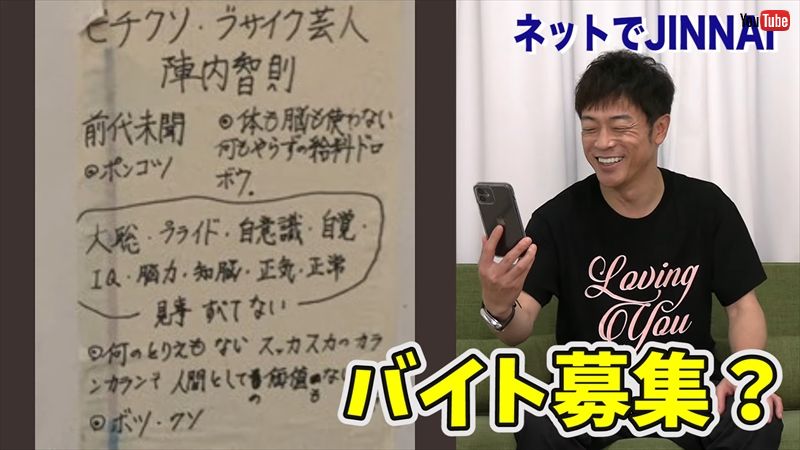 ヒチクソ・ブサイク芸人
陣内智則
前代未聞
◎ポンコツ
◎体も脳も使わない
何もやらずの給料ドロ
ボウ.
大聡・プライド・自意識・自覚・
IQ・脳力・知脳・正気・正常
見事 すべてない
◎何のとりえもない スッカスカのカラ
ンカランで 人間としての価値もない
◎ボツ・クソ
ネットでJINNAI
YouTube
Loving
You
バイト募集？